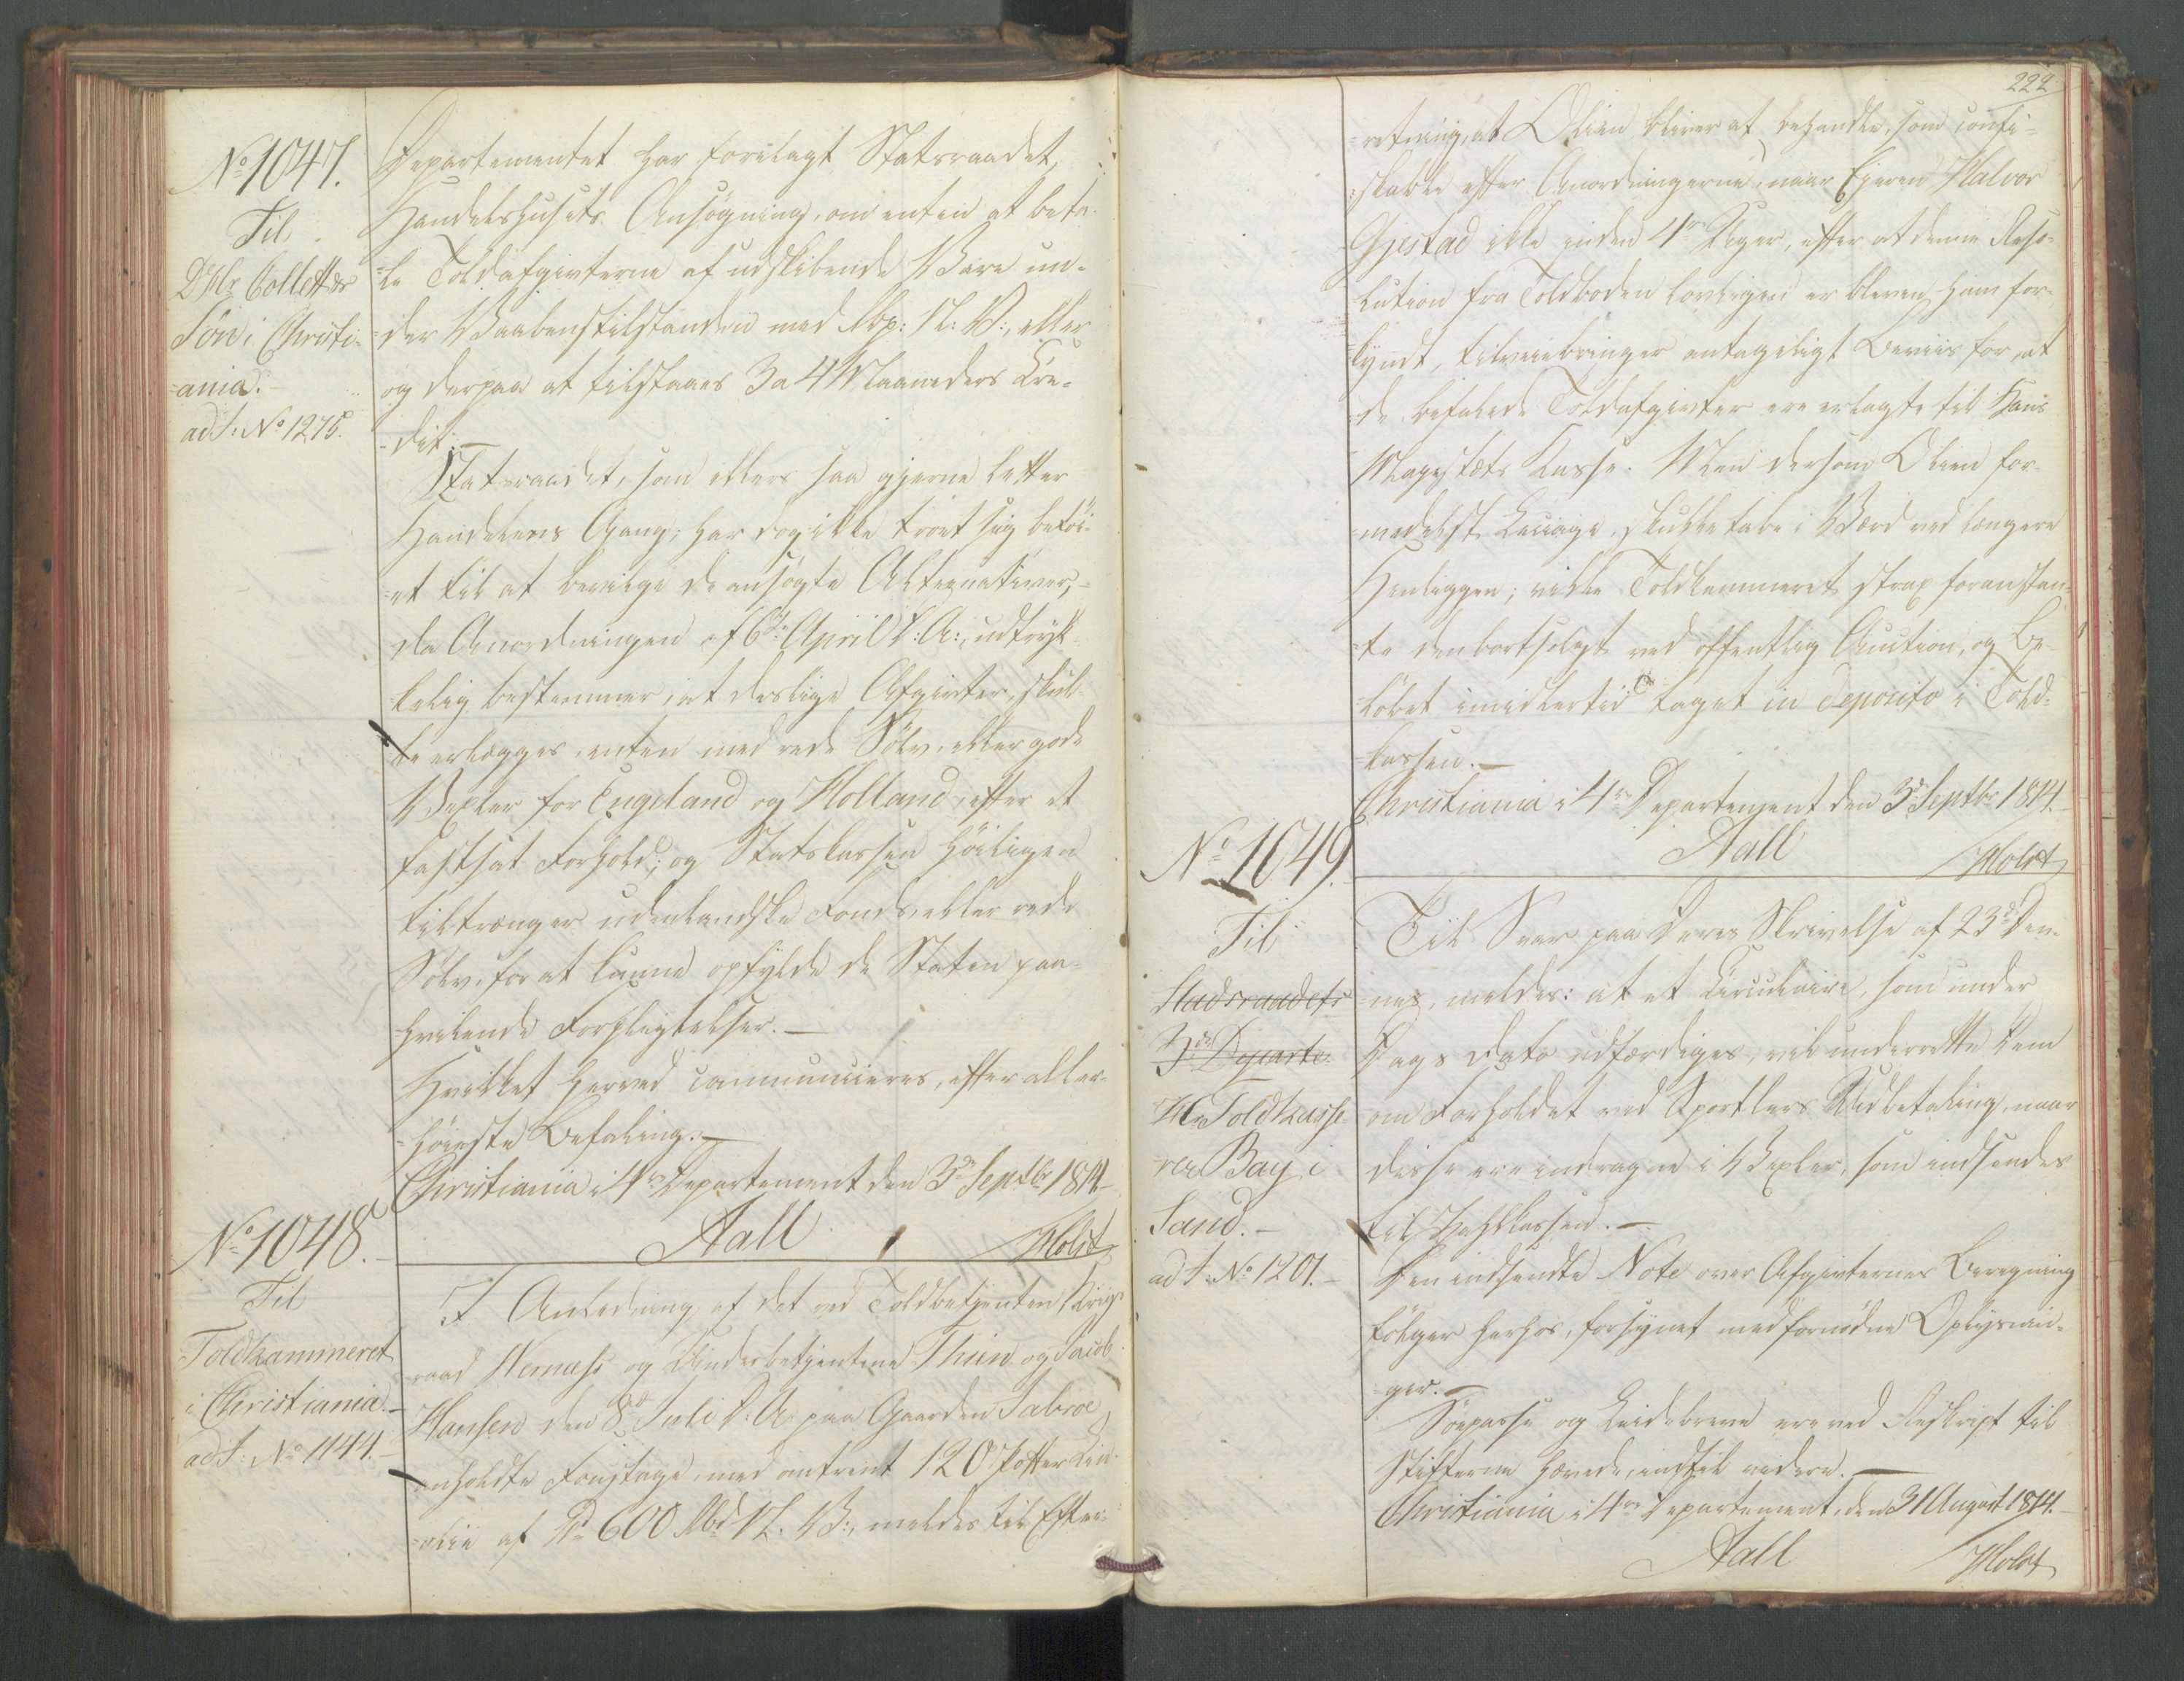 No 1047.
Til
D'Hr Collett &
Søn i Christi-
ania.
ad J: No 1275.
Departementet har forelagt Statsraadet,
Handelshusets Ansøgning, om enten at beta-
-le Toldafgivterne af udskibende Vare un-
der Vaabenstilstanden med Rbp: N: V:, eller
og derpaa at tilstaaes 3 a 4 Maaneders Kre-
-dit.
Statsraadet, som ellers saa gjerne letter
Handelens Gang, har dog ikke troet sig beføi-
-et til at bevilge de ansøgte Alternativer,
da Anordningen af 6te April d: A:, udtryk-
kelig bestemmer, at deslige Afgivter, skul-
le erlægges, enten med rede Sølv, eller gode
Vexler for Engeland og Holland, efter et
fastsat Forhold; og Statskassen høiligen
tiltrænger udenlandske Fonds, eller rede
Sølv, for at kunne opfylde de Staten paa-
hvilende Forpligtelser.
Hvilket herved communiceres, efter aller-
høieste Befaling.
Christiania i 4de Departement den 3de Septbr 1814.
Aall Holst
No 1048.
Til
Toldkammeret
i Christiania.
ad J: No 1144.
I Anledning af det ved Toldbetjenten Krigs-
raad Wernæss og Underbetjentene Thun og Jacob
Hansen den 8de Juli d: A: paa Gaarden Sabroe
anholdte Foustage, med omtrent 120 Potter Lin-
olie af 600 Rbd N. V:, meldes til Efter-
222
-retning, at Olien bliver at behandle, som confi-
-skabel efter Anordningerne, naar Eieren Halvor
Gjestad ikke inden 4re Uger, efter at denne Reso-
lution fra Toldboden lovligen er bleven ham for-
kyndt, tilveiebringer antageligt Beviis for, at
de befalede Toldafgivter ere erlagte til Hans
Majestæts Kasse. Men dersom Olien for-
medelst Leccage, skulle tabe i Værd ved længere
Henliggen; ville Toldkammeret strax foranstal-
te den bortsolgt ved offentlig Auction, og Be-
løbet imidlertid taget in deposito i Told-
kassen.
Christiania i 4de Departement den 3de Septbr 1814.
Aall Holst
No 1049.
Til
Stadsraadets
3de Departe-
Hr Toldkasse-
rer Bay i
Sand.
ad J: No 1201.
Til Svar paa Deres Skrivelse af 23de Den-
nes, meldes: at et Circulaire, som under
Dags Dato udfærdiges, vil underrette Dem
om Forholdet ved Sportlers Udbetaling, naar
disse ere indragne i Vexler, som indsendes
til Zahlkassen.
Den indsendte Note over Afgivternes Beregning
følger herhos, forsynet med fornødne Oplysnin-
ger.
Søepasse og Leidebreve ere ved Rescript til
Stifterne hævede, indtil videre.
Christiania i 4de Departement, den 31 August 1814.
Aall Holst